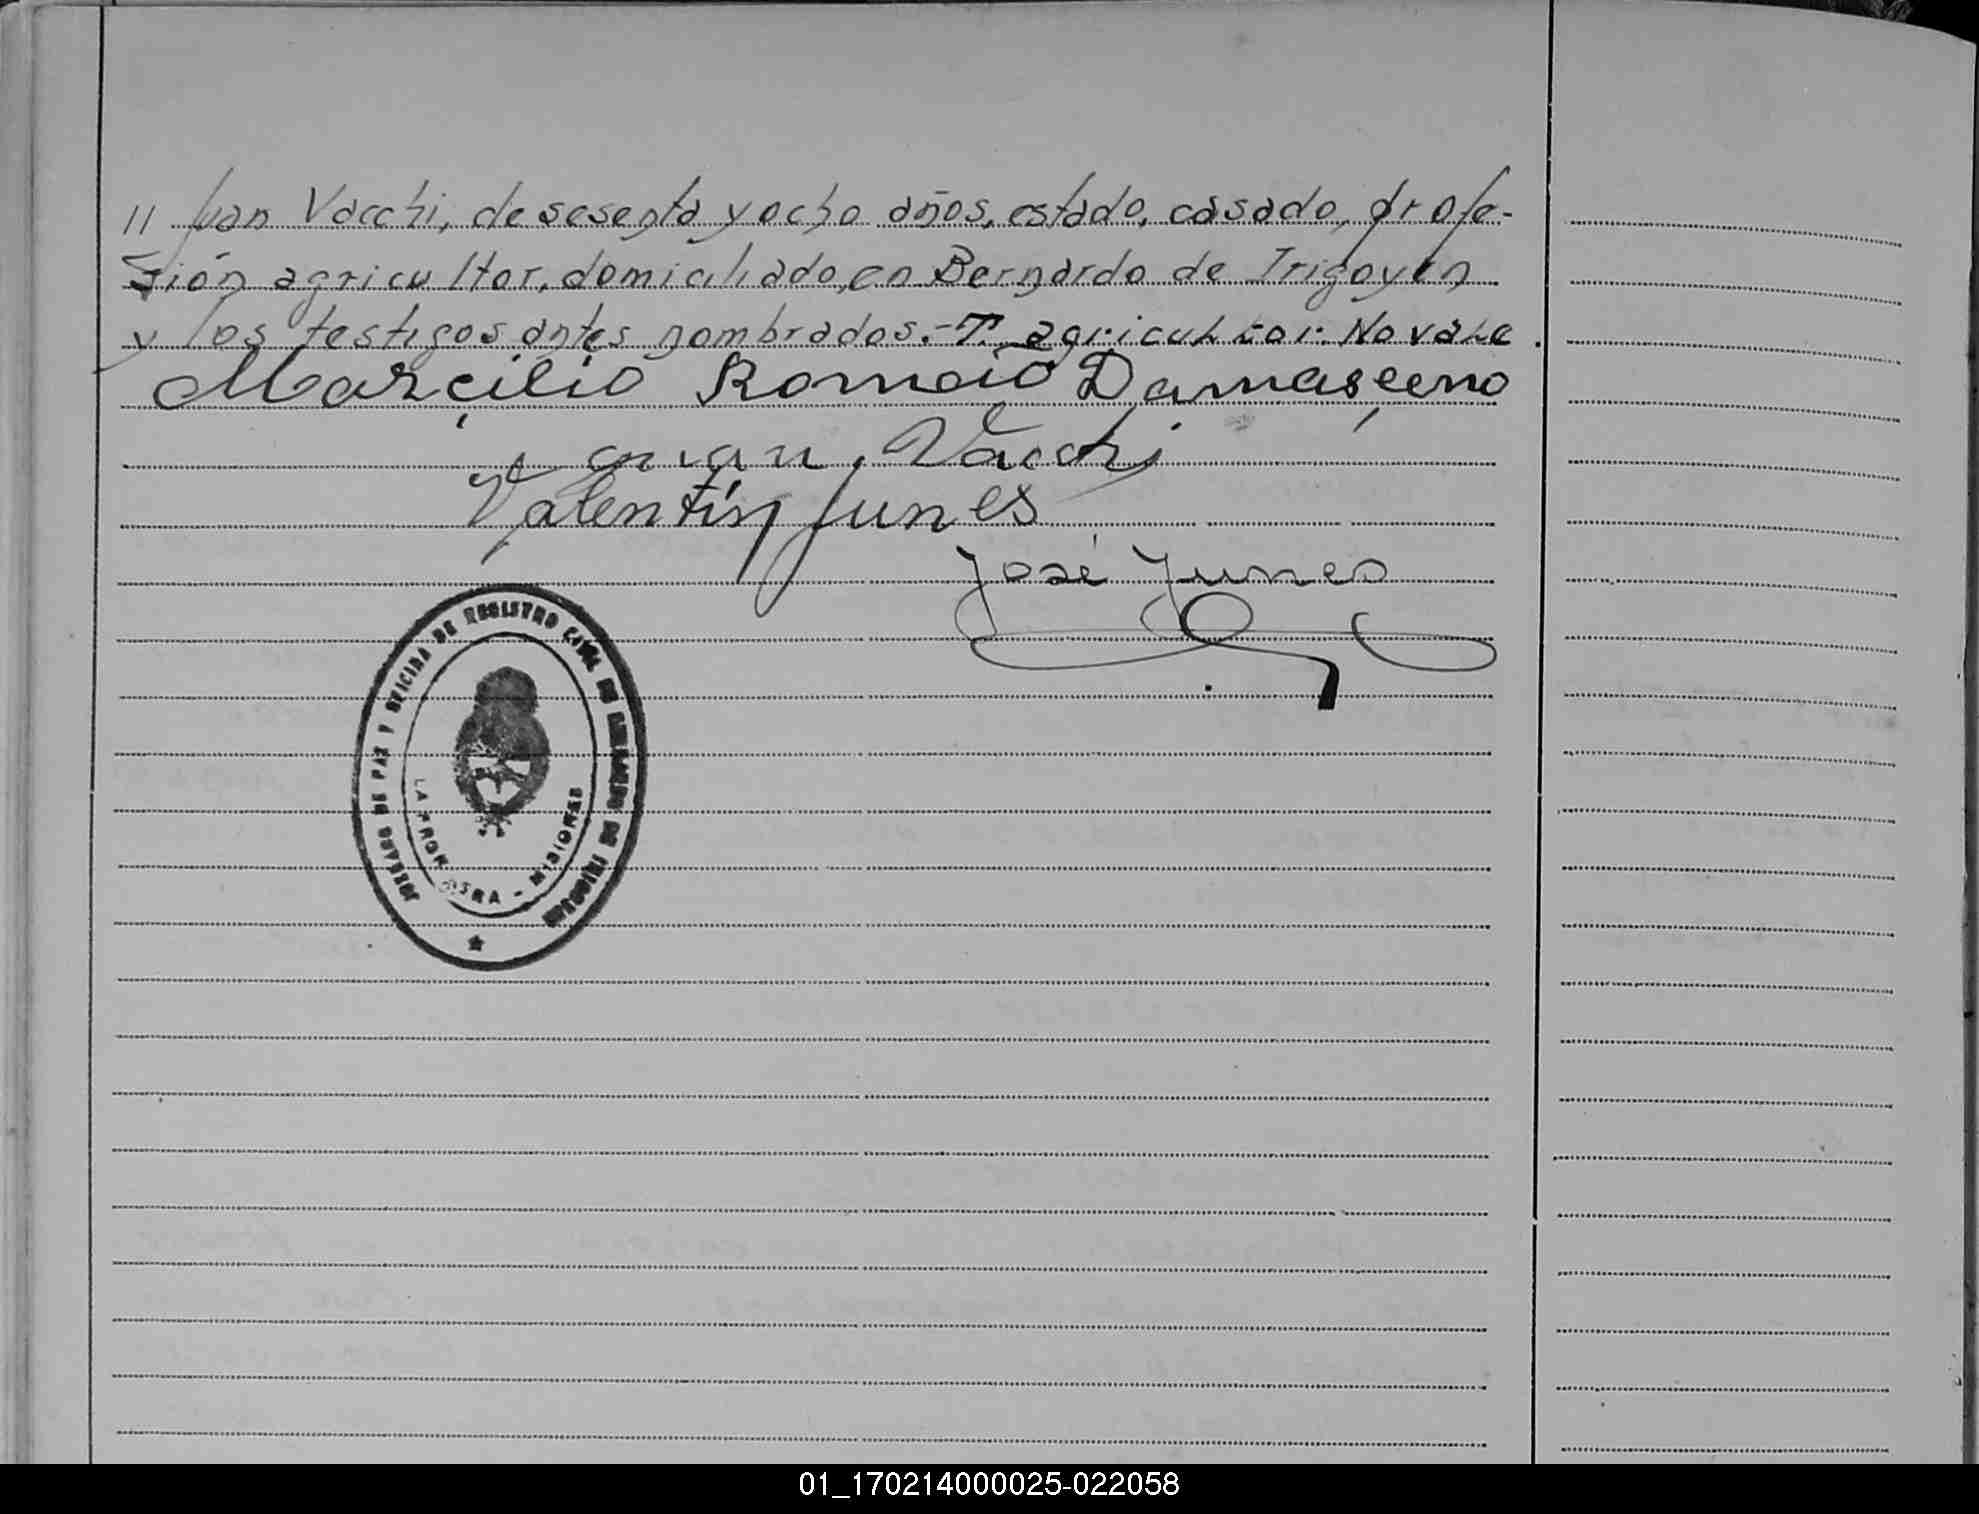 " Juan Vacchi, de sesenta y ocho años, estado, casado, profe-
sión agricultor, domiciliado, en Bernardo de Irigoyen
y los testigos antes nombrados.-T. agricultor. No vale.
Marcilio Romaió Damasceno
Juan Vacchi
Valentín Junes
José Junes
JUZGADO DE PAZ Y OFICINA DE REGISTRO CIVIL DE BERNARDO DE IRIGOYEN
LA FRONTERA - MISIONES
01_170214000025-022058